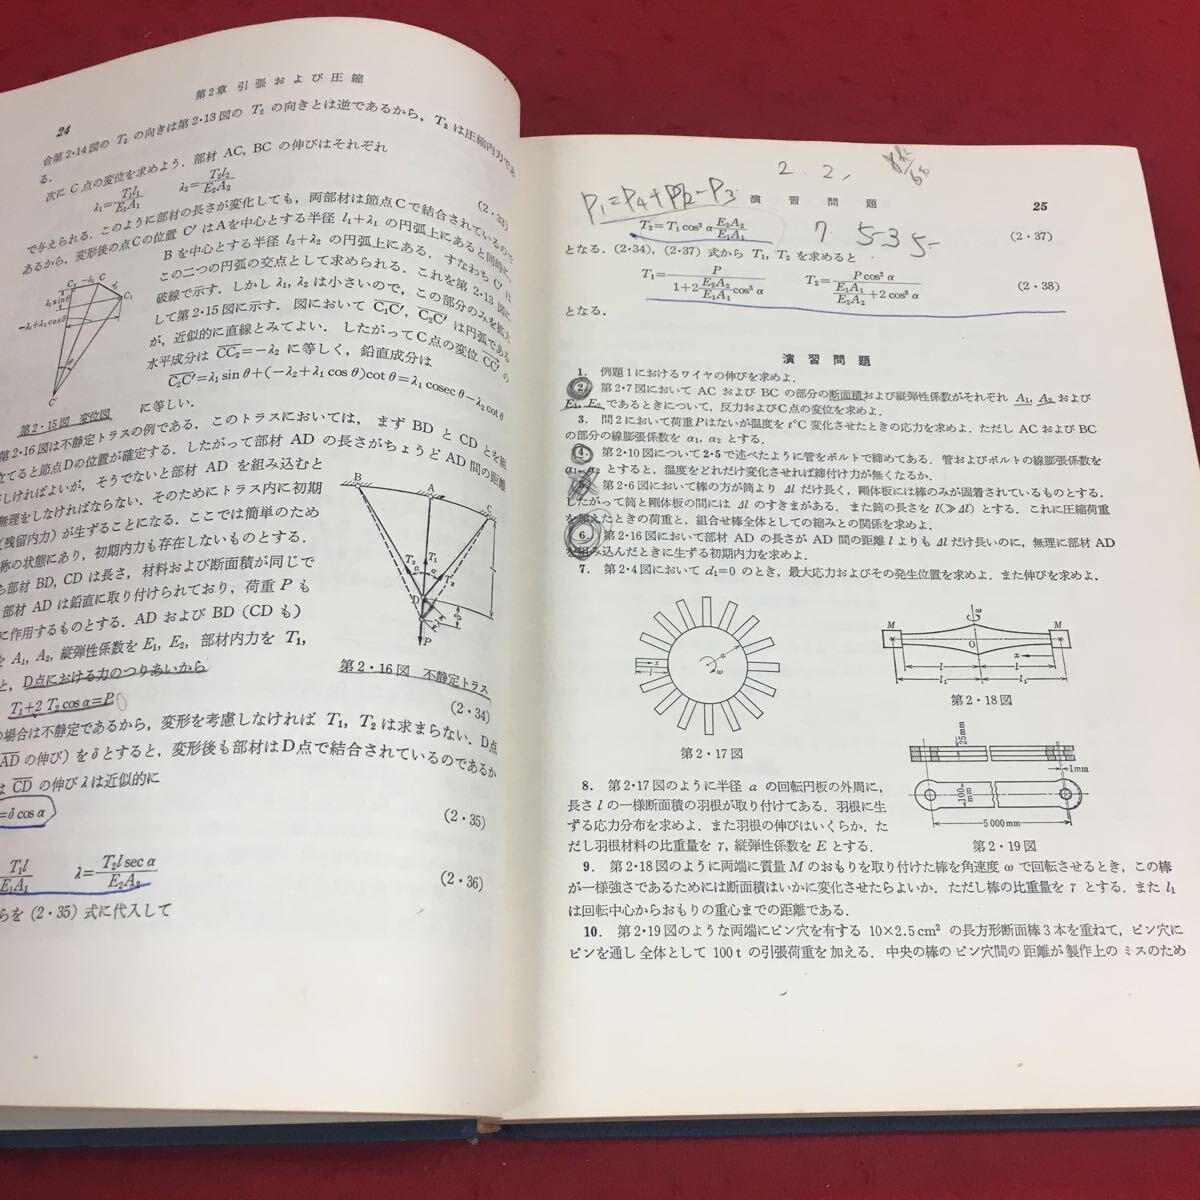 24
第2章 引張および圧縮
合第2・14図の T₂ の向きは第2・13図の T₂ の向きとは逆であるから，T₂ は圧縮内力であ
る．
次に C 点の変位を求めよう．部材 AC, BC の伸びはそれぞれ
λ₁=T₁l₁/E₁A₁ λ₂=T₂l₂/E₂A₂ (2・33)
で与えられる．このように部材の長さが変化しても，両部材は節点Cで結合されているので
あるから，変形後の点Cの位置 C′ はAを中心とする半径 l₁+λ₁ の円弧上にあると同時に，
B を中心とする半径 l₂+λ₂ の円弧上にある．すなわち C′ は
この二つの円弧の交点として求められる．これを第 2・13 図に
破線で示す．しかし λ₁, λ₂ は小さいので，この部分のみを拡大
して第2・15図に示す．図において C₁C′, C₂C′ は円弧である
が，近似的に直線とみてよい．したがってC点の変位 CC′ の
水平成分は CC₂=−λ₂ に等しく，鉛直成分は
C₂C′=λ₁ sin θ+(−λ₂+λ₁ cos θ)cot θ=λ₁ cosec θ−λ₂ cot θ
に等しい．
第2・15図 変位図
第2・16図は不静定トラスの例である．このトラスにおいては，まず BD と CD とを組
立てると節点Dの位置が確定する．したがって部材 AD の長さがちょうど AD 間の距離
しければよいが，そうでないと部材 AD を組み込むと
無理をしなければならない．そのためにトラス内に初期
(残留内力) が生ずることになる．ここでは簡単のため
称の状態にあり，初期内力も存在しないものとする．
部材 BD, CD は長さ，材料および断面積が同じで
部材 AD は鉛直に取り付けられており，荷重 P も
に作用するものとする．AD および BD (CD も)
A₁, A₂, 縦弾性係数を E₁, E₂, 部材内力を T₁,
と，D点における力のつりあいから
第2・16図 不静定トラス
T₁+2 T₂ cos α=P (2・34)
の場合は不静定であるから，変形を考慮しなければ T₁, T₂ は求まらない．D点
AD の伸び) を δ とすると，変形後も部材はD点で結合されているのであるか
CD の伸び λ は近似的に
=δ cos α (2・35)
T₁l/E₁A₁ λ=T₂l sec α/E₂A₂ (2・36)
らを (2・35) 式に代入して
2.2,
P₁=P₄+
演習問題
25
T₂=T₁ cos² α E₂A₂/E₁A₁ (2・37)
7 5-35-
となる．(2・34), (2・37) 式から T₁, T₂ を求めると
T₁=P/(1+2 E₂A₂/E₁A₁ cos³ α) T₂=P cos² α/(E₁A₁/E₂A₂+2 cos³ α) (2・38)
となる．
演習問題
1. 例題1におけるワイヤの伸びを求めよ．
2. 第2・7図において AC および BC の部分の断面積および縦弾性係数がそれぞれ A₁, A₂ および
E₁, E₂ であるときについて，反力およびC点の変位を求めよ．
3. 問2において荷重Pはないが温度を t°C 変化させたときの応力を求めよ．ただし AC および BC
の部分の線膨張係数を α₁, α₂ とする．
4. 第2・10図について 2・5 で述べたように管をボルトで締めてある．管およびボルトの線膨張係数を
α₁, α₂ とすると，温度をどれだけ変化させれば締付け力が無くなるか．
5. 第2・6図において棒の方が筒より Δl だけ長く，剛体板には棒のみが固着されているものとする．
したがって筒と剛体板の間には Δl のすきまがある．また筒の長さを l(≫Δl) とする．これに圧縮荷重
を加えたときの荷重と，組合せ棒全体としての縮みとの関係を求めよ．
6. 第2・16図において部材 AD の長さが AD 間の距離 l よりも Δl だけ長いのに，無理に部材 AD
を組み込んだときに生ずる初期内力を求めよ．
7. 第2・4図において d₁=0 のとき，最大応力およびその発生位置を求めよ．また伸びを求めよ．
第2・17図
第2・18図
25mm
1mm
100mm
5 000mm
第2・19図
8. 第2・17図のように半径 a の回転円板の外周に，
長さ l の一様断面積の羽根が取り付けてある．羽根に生
ずる応力分布を求めよ．また羽根の伸びはいくらか．た
だし羽根材料の比重量を γ, 縦弾性係数を E とする．
9. 第2・18図のように両端に質量 M のおもりを取り付けた棒を角速度 ω で回転させるとき，この棒
が一様強さであるためには断面積はいかに変化させたらよいか．ただし棒の比重量を γ とする．また l₁
は回転中心からおもりの重心までの距離である．
10. 第2・19図のような両端にピン穴を有する 10×2.5 cm² の長方形断面棒3本を重ねて，ピン穴に
ピンを通し全体として 100 t の引張荷重を加える．中央の棒のピン穴間の距離が製作上のミスのため